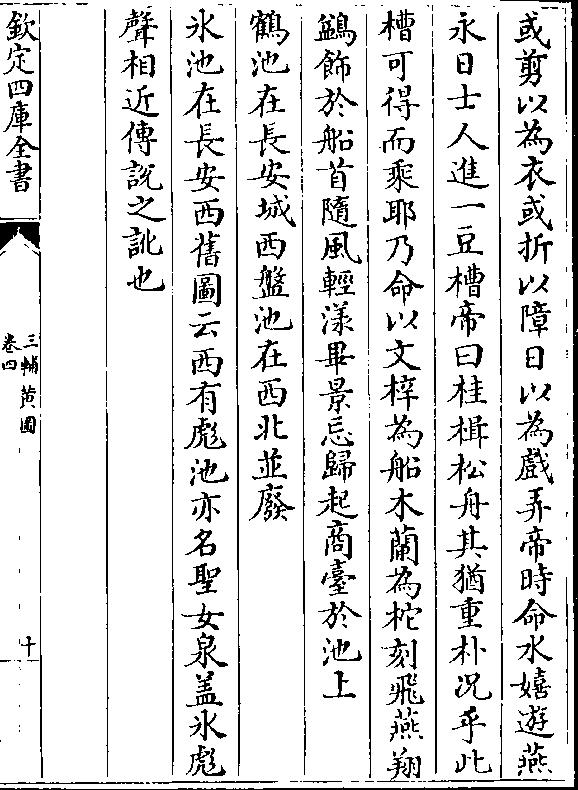 或剪以為衣或折以障日以為戲弄帝時命水嬉遊燕
永日士人進一豆槽帝曰桂楫松舟其猶重朴况乎此
槽可得而乘耶乃命以文梓為船木蘭為柁刻飛燕翔
鷁飾於船首隨風輕漾畢景忘歸起商臺於池上
鶴池在長安城西盤池在西北並廢
氷池在長安西舊圖云西有彪池亦名聖女泉盖氷彪
聲相近傳説之訛也
欽定四庫全書
三輔黄圖
卷四
十